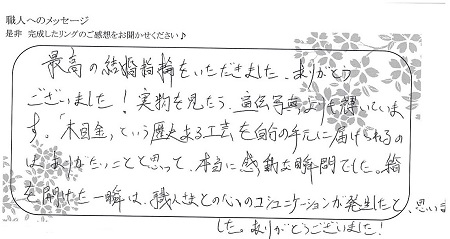 職人へのメッセージ
是非 完成したリングのご感想をお聞かせください♪
最高の結婚指輪をいただきました。ありがとう
ございました！実物を見たら、宣伝写真よりも輝いていま
す。「木目金」という歴史ある工芸を自分の手元に届けられるの
は、ありがたいことと思って、本当に感動な瞬間でした。箱
を開けた一瞬は、職人さまとの心のコミュニケーションが発生したと、思いま
した。ありがとうございました！